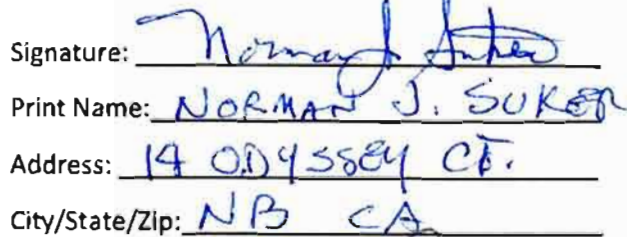 Signature: Norman J. Suker
Print Name: NORMAN J. SUKER
Address: 14 ODYSSEY CT.
City/State/Zip: NB CA